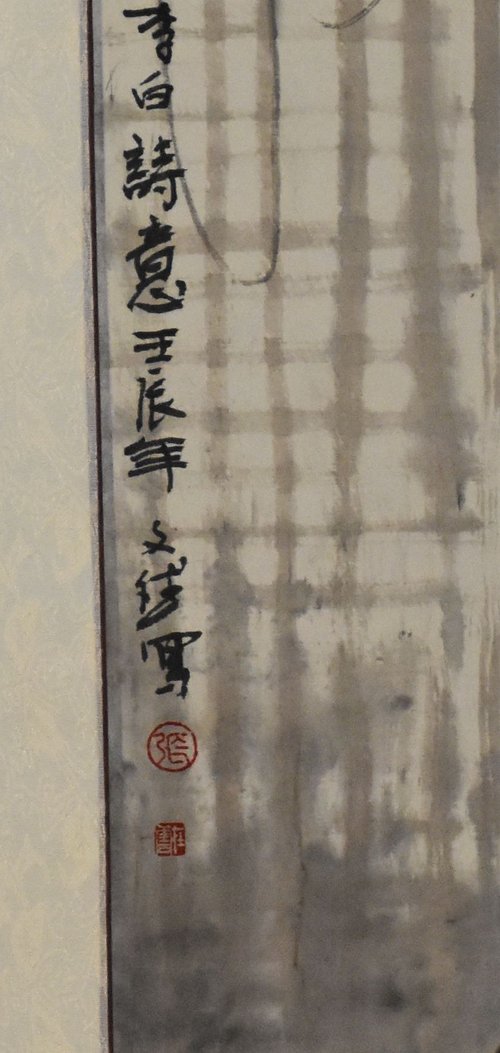 李白詩意壬辰年 文 寫
張